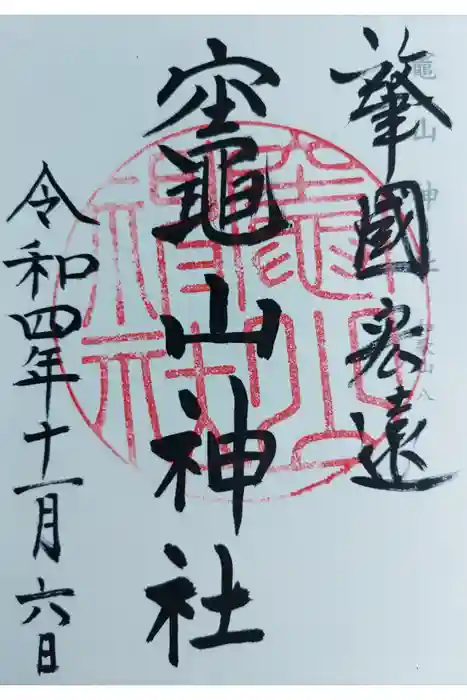 肇國宏遠
竈山神社
令和四年十一月六日
竈山
神社